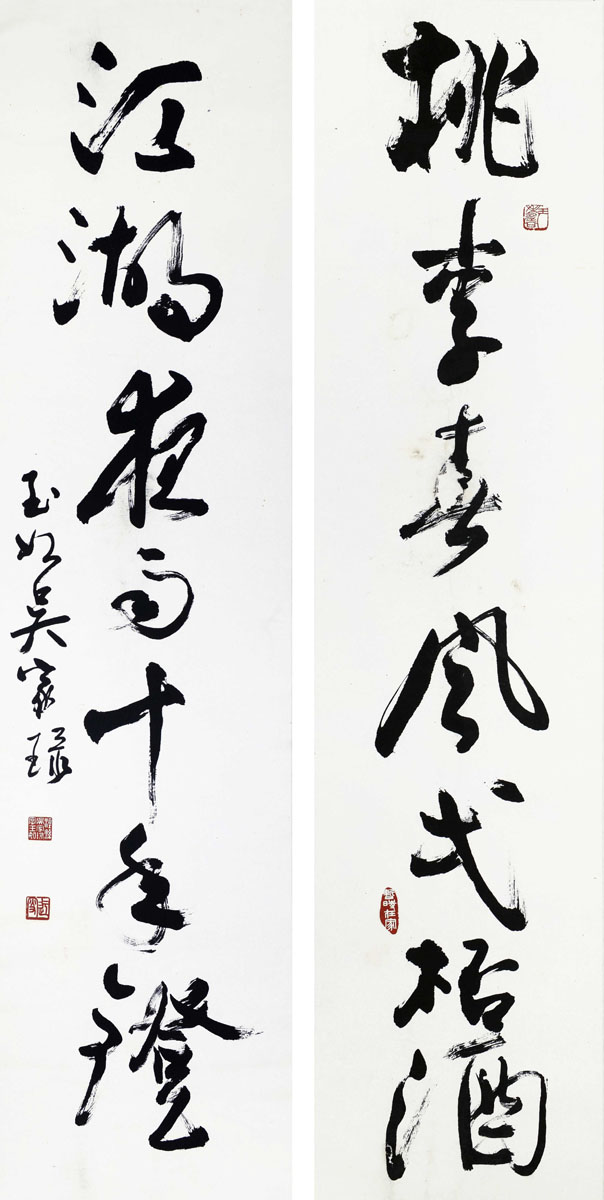 桃李春風弌桮酒
江湖夜雨十年鐙
玉如吳家琭